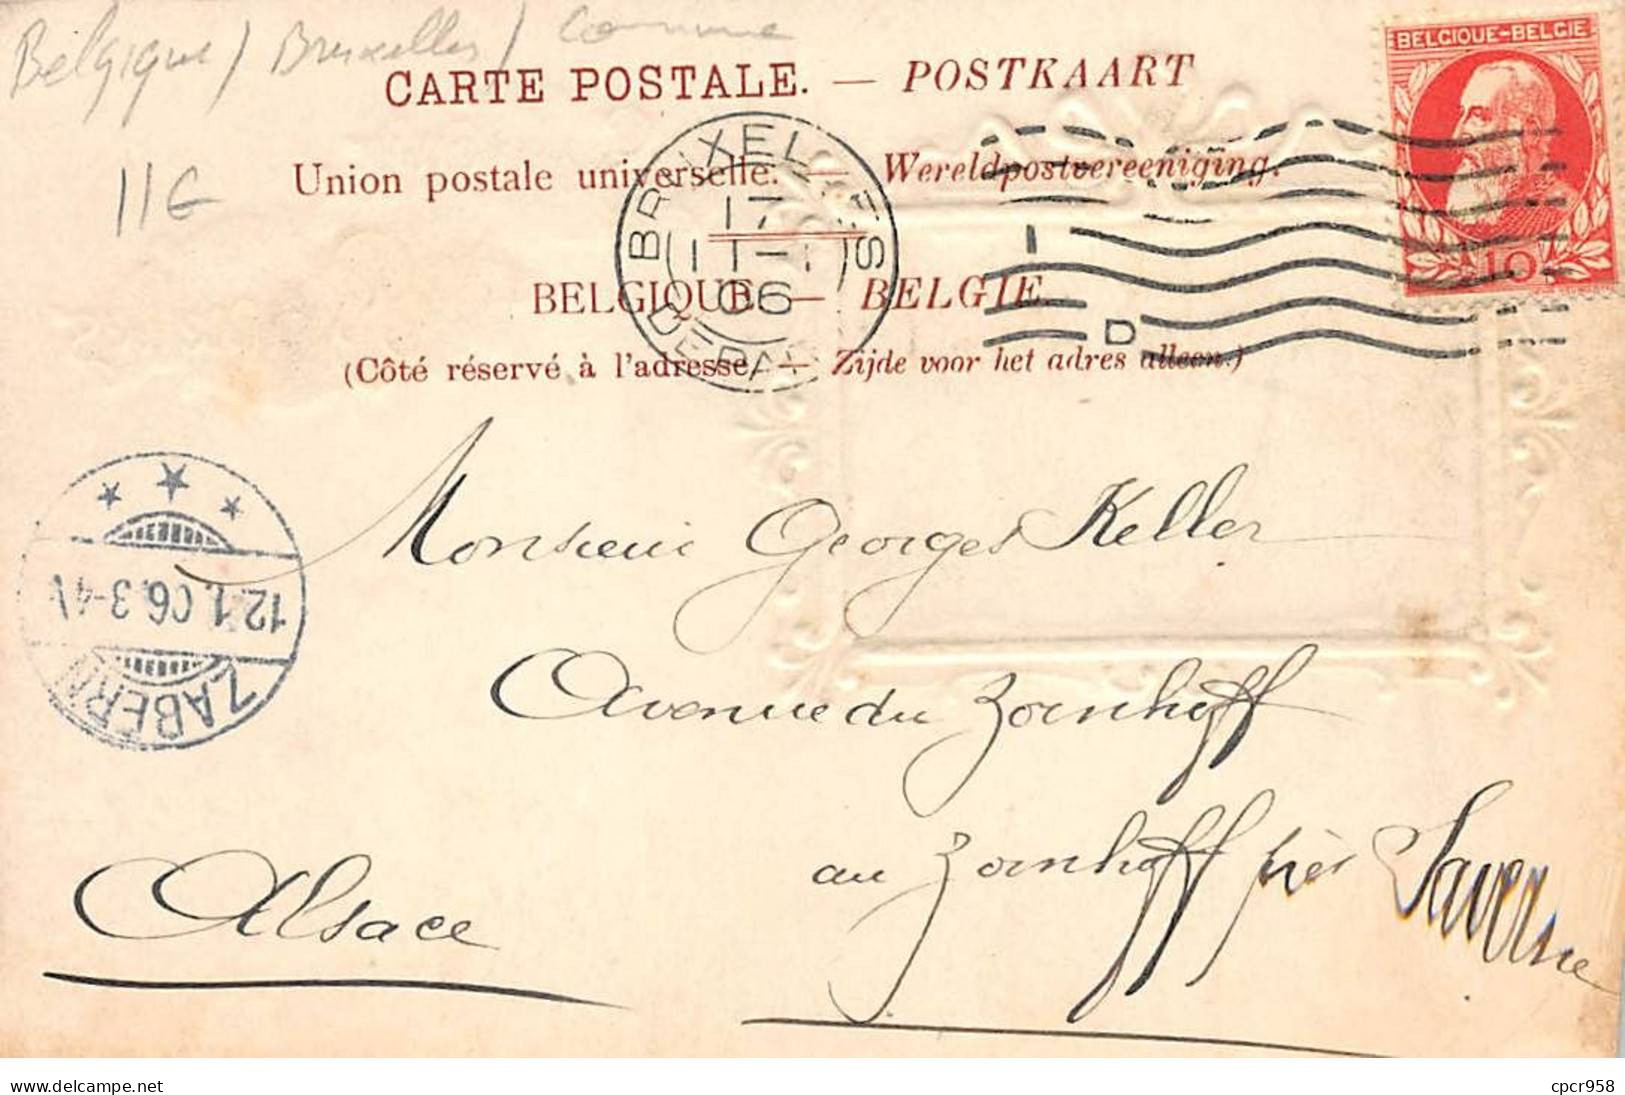 Belgique / Bruxelles / Commune
BELGIQUE-BELGIE
CARTE POSTALE. — POSTKAART
11G
Union postale universelle. — Wereldpostvereeniging.
BRUXELLES
17
06
DEPART
10
BELGIQUE — BELGIE.
D
(Côté réservé à l'adresse. — Zijde voor het adres alleen.)
Monsieur Georges Keller
12.1.06.3-4
ZABERN
Avenue du Zornhoff
au Zornhoff près Saverne
Alsace
cpcr958